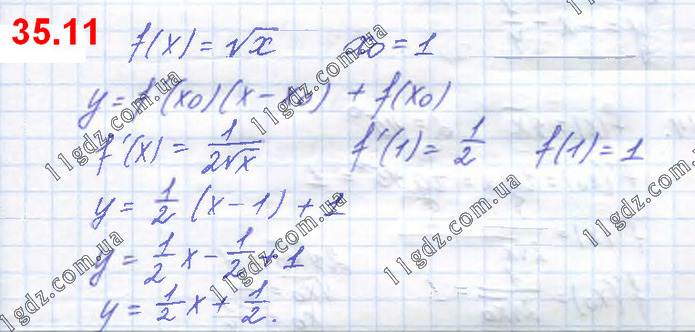 35.11
f(x) = √x x₀ = 1
y = f'(x₀)(x - x₀) + f(x₀)
f'(x) = 1/(2√x) f'(1) = 1/2 f(1) = 1
y = 1/2 (x - 1) + 1
y = 1/2 x - 1/2 + 1
y = 1/2 x + 1/2.
11gdz.com.ua
11gdz.com.ua
11gdz.com.ua
11gdz.com.ua
11gdz.com.ua
11gdz.com.ua